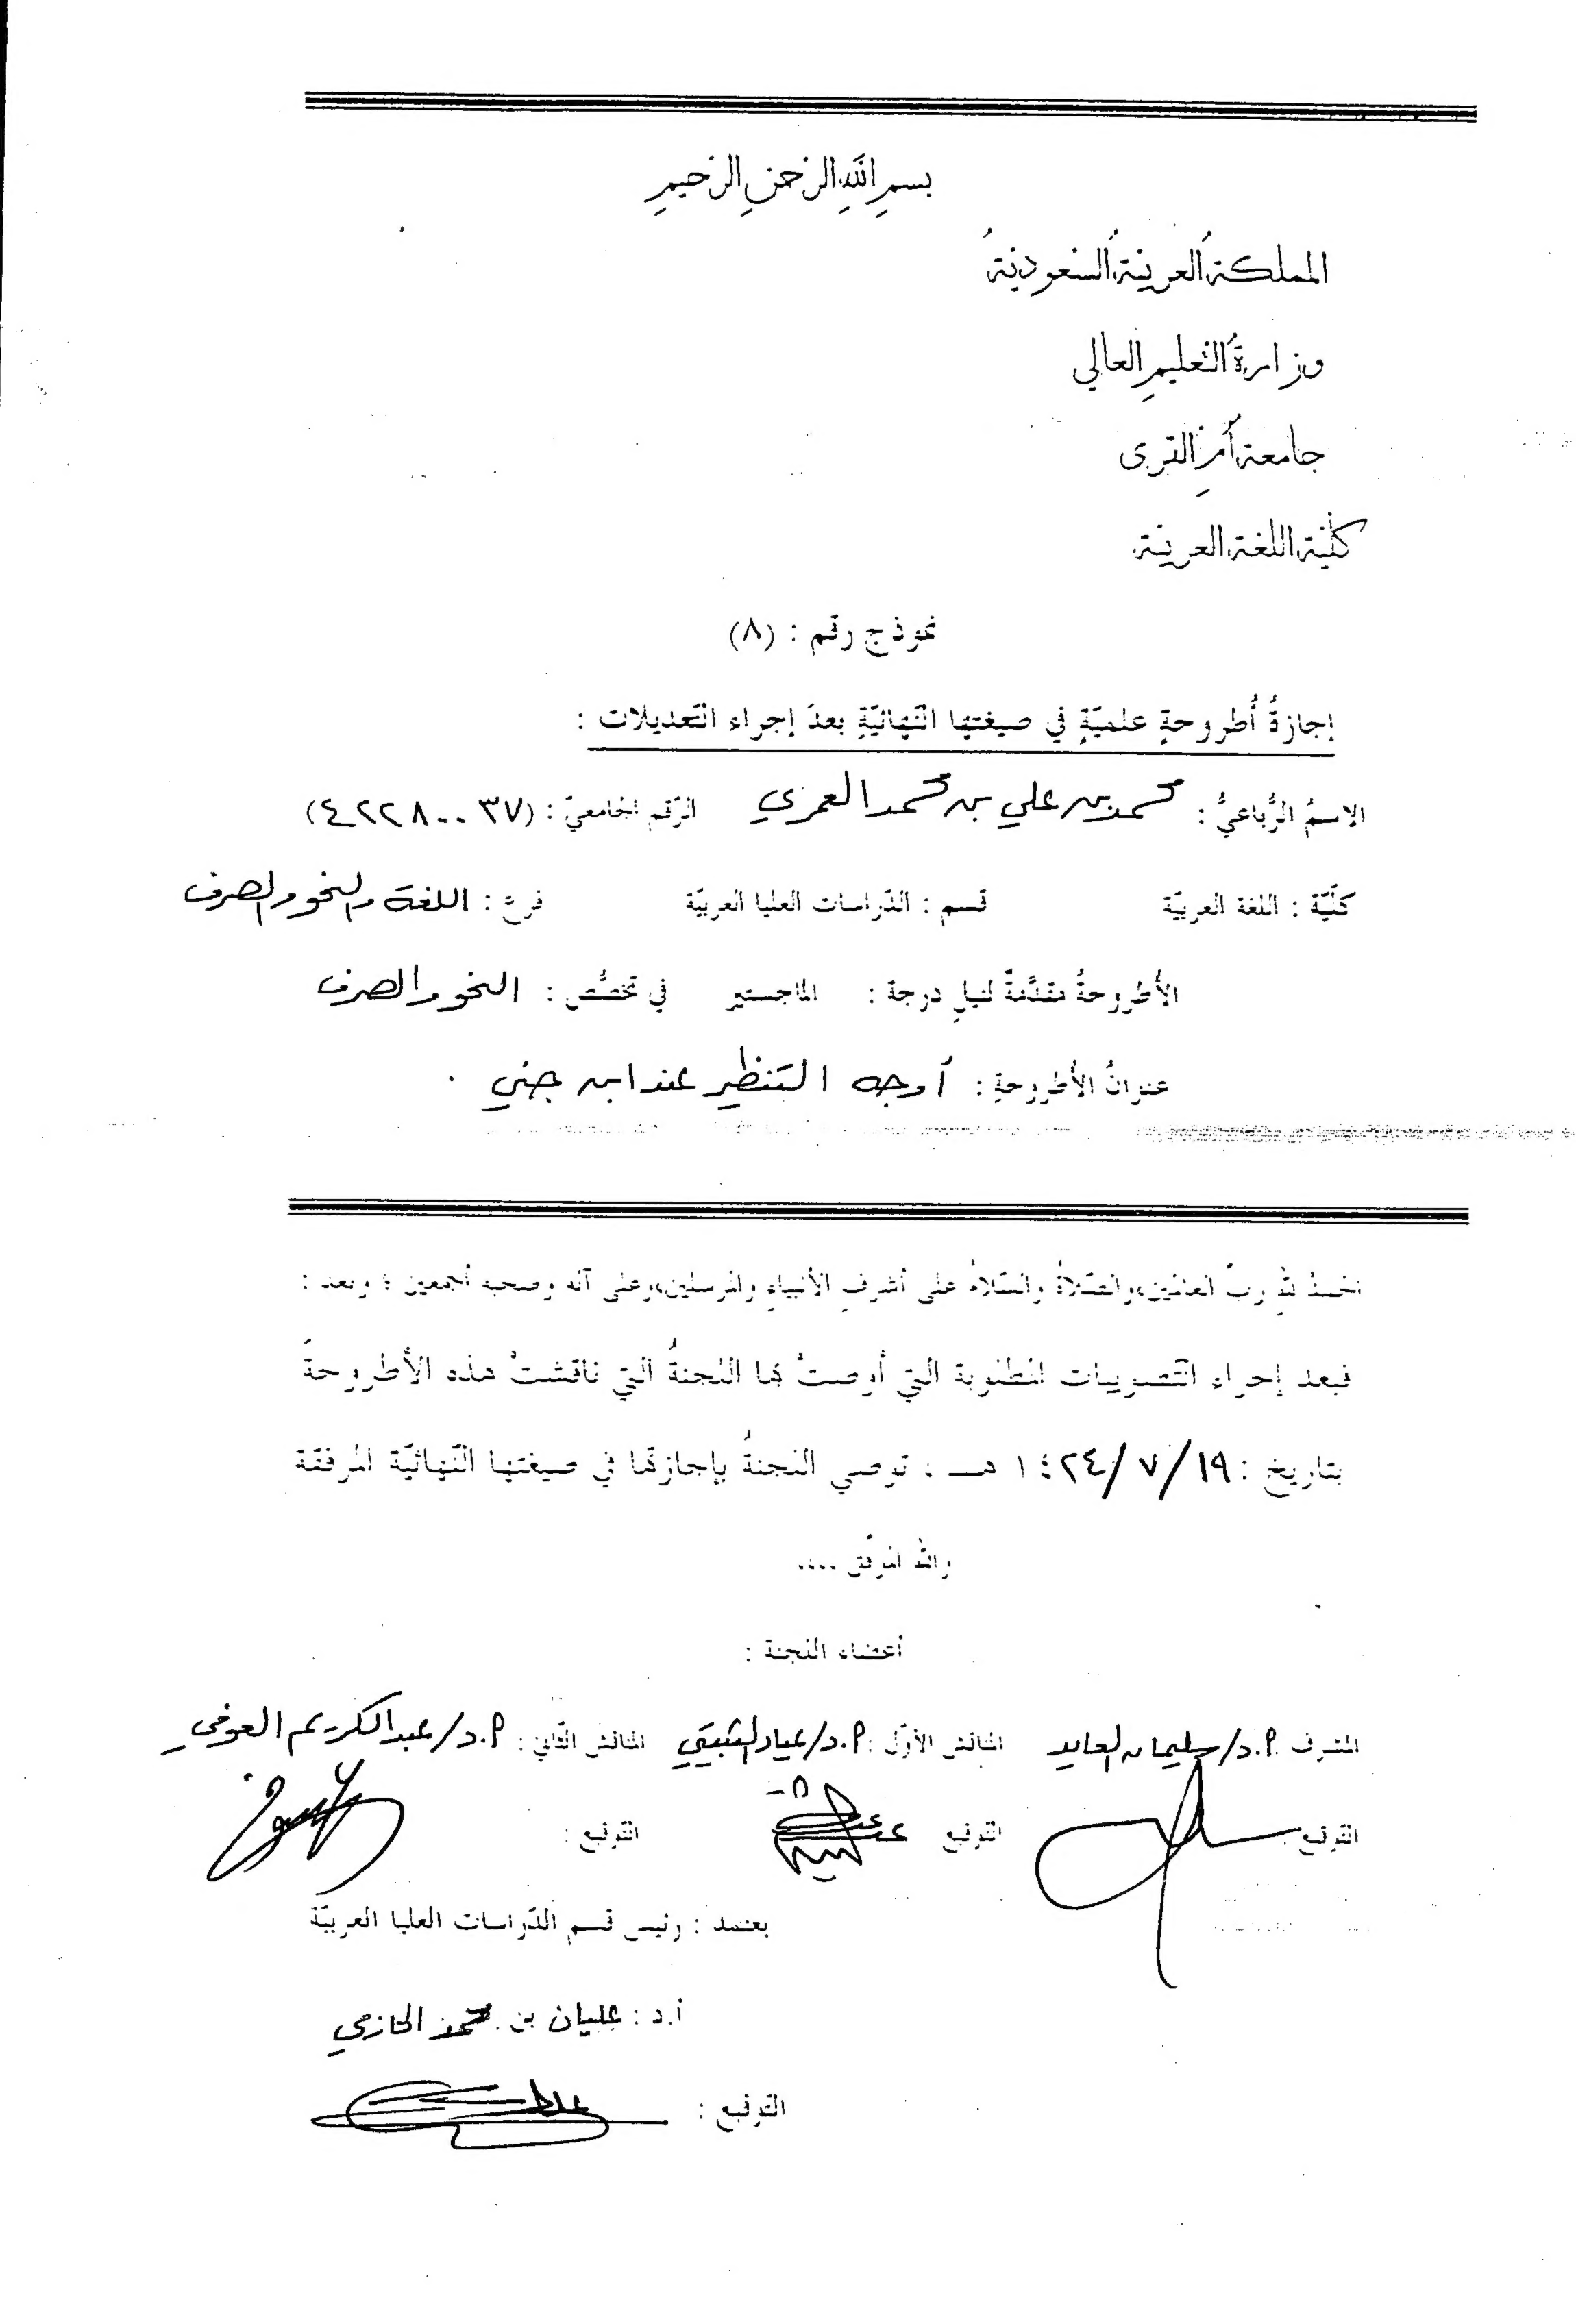 بسمِ اللَّهِ الرَّحمنِ الرَّحيمِ
المملكةُ العربيَّةُ السُّعوديَّةُ
وزارةُ التَّعليمِ العالي
جامعةُ أمِّ القرى
كليَّة اللغة العربيَّة
نموذج رقم : (٨)
إجازةُ أُطروحةٍ علميّةٍ في صيغتها النّهائيّةِ بعدَ إجراء التّعديلات :
الاسمُ الرُّباعيُّ : محمد بن علي بن محمد العمري الرّقم الجامعيّ : (٤٢٢٨٠٠٣٧)
كلّيّة : اللغة العربيّة قسم : الدّراسات العليا العربيّة فرع : اللغة والنحو والصرف
الأطروحةُ مقدَّمةٌ لنيلِ درجة : الماجستير في تخصُّص : النحو والصرف
عنوانُ الأطروحةِ : أوجه التنظير عند ابن جني .
الحمدُ للهِ ربّ العالمين،والصّلاةُ والسّلامُ على أشرفِ الأنبياءِ والمرسلين،وعلى آله وصحبه أجمعين ؛ وبعد :
فبعد إجراء التّصويبات المطلوبة التي أوصتْ بها اللجنةُ التي ناقشتْ هذه الأطروحةَ
بتاريخ : ١٤٢٤/٧/١٩ هـ ، توصي اللجنةُ بإجازتها في صيغتها النّهائيّة المرفقة
والله الموفّق ....
أعضاء اللجنة :
المشرف : أ.د/سليمان العايد المناقش الأوّل : أ.د/عياد الثبيتي المناقش الثّاني : أ.د/عبدالكريم العوفي
التوقيع : التوقيع التوقيع :
يعتمد : رئيس قسم الدّراسات العليا العربيّة
أ.د : عليان بن محمد الحازمي
التوقيع :